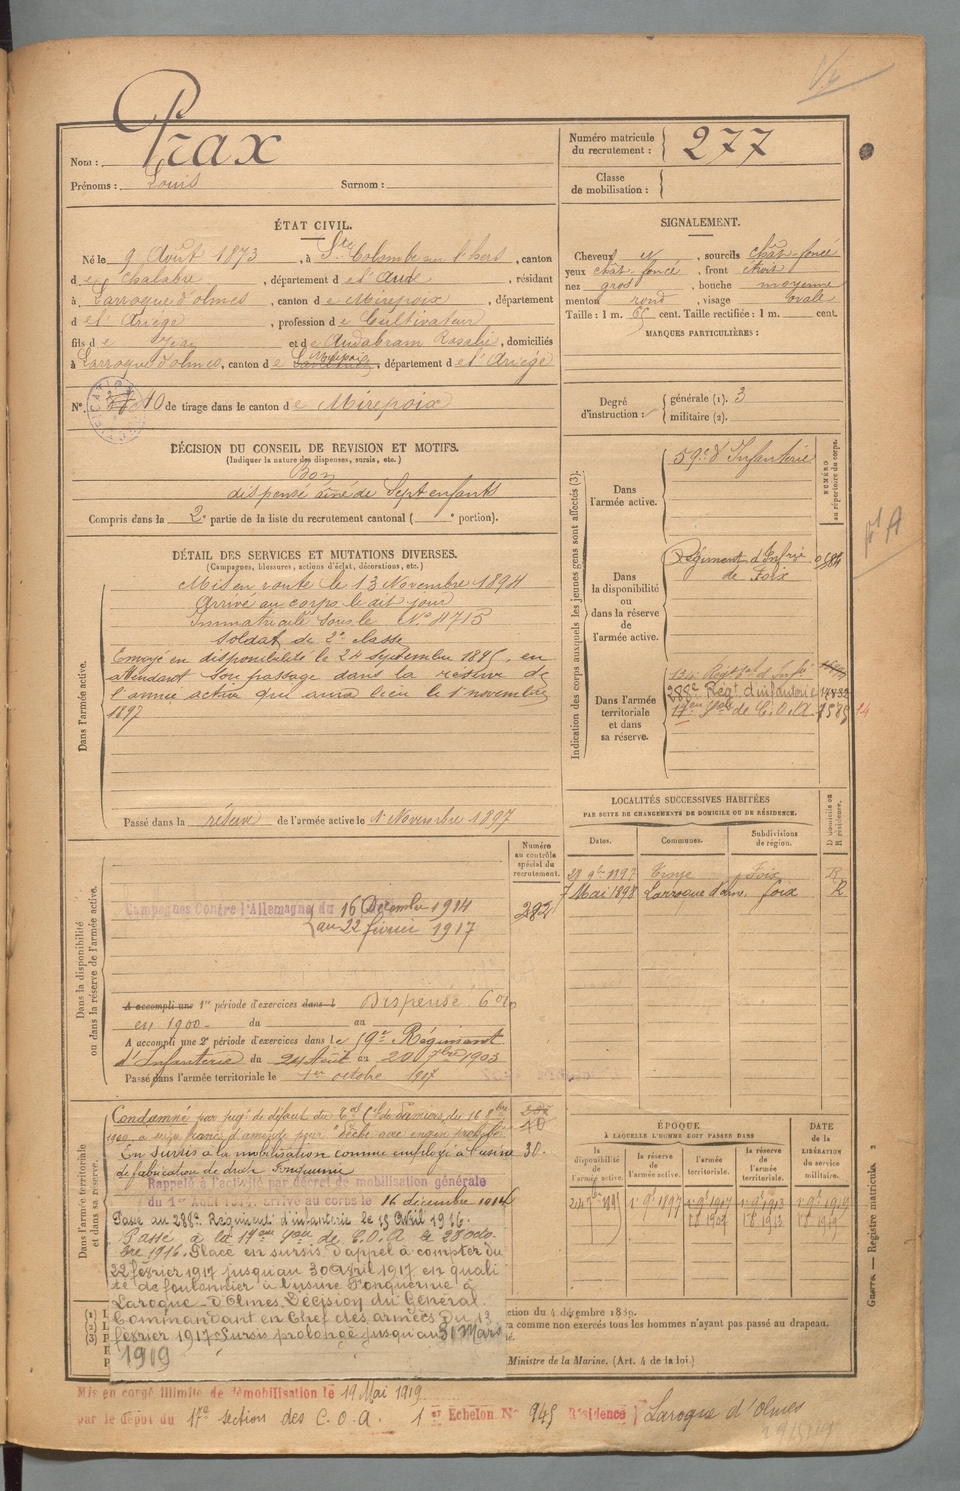 Nom : Prax
Prénoms : Louis Surnom :
Numéro matricule du recrutement : 277
Classe de mobilisation :
ÉTAT CIVIL.
Né le 9 Août 1873, à Ste Colombe sur l'hers, canton
de Chalabre, département de l'Aude, résidant
à Larroque d'olmes, canton de Mirepoix, département
de l'Ariège, profession de Cultivateur
fils de Jean et de Audabram Rosalie, domiciliés
à Larroque d'olmes, canton de Mirepoix, département de l'Ariège
N° 10 de tirage dans le canton de Mirepoix
SIGNALEMENT.
Cheveux et, sourcils chât. foncé
yeux chât. foncé, front étroit
nez gros, bouche moyenne
menton rond, visage ovale
Taille : 1 m. 65 cent. Taille rectifiée : 1 m. cent.
MARQUES PARTICULIÈRES :
Degré d'instruction : générale (1). 3
militaire (2).
DÉCISION DU CONSEIL DE REVISION ET MOTIFS.
(Indiquer la nature des dispenses, sursis, etc.)
Bon
dispensé aîné de Sept enfants
Compris dans la 2e partie de la liste du recrutement cantonal ( e portion).
DÉTAIL DES SERVICES ET MUTATIONS DIVERSES.
(Campagnes, blessures, actions d'éclat, décorations, etc.)
Dans l'armée active.
Mis en route le 13 Novembre 1894
Arrivé au corps le dit jour
Immatriculé sous le N° 4715
Soldat de 2e classe
Envoyé en disponibilité le 24 septembre 1895, en
attendant son passage dans la réserve de
l'armée active qui aura lieu le 1er novembre
1897
Passé dans la réserve de l'armée active le 1er Novembre 1897
Indication des corps auxquels les jeunes gens sont affectés (3).
NUMÉRO au répertoire du corps.
Dans l'armée active.
59e d'Infanterie
Dans la disponibilité ou dans la réserve de l'armée active.
Régiment d'Infrie
de Foix
Dans l'armée territoriale et dans sa réserve.
134e Régt tal d'Infie
288e Régt d'infanterie
17eme Son de C.O.A. 7585
pl A
LOCALITÉS SUCCESSIVES HABITÉES
PAR SUITE DE CHANGEMENTS DE DOMICILE OU DE RÉSIDENCE.
Dates. Communes. Subdivisions de région. D domicile ou R résidence.
28 9bre 1897 Foix R
7 Mai 1898 Larroque d'olm. foix R
Numéro au contrôle spécial du recrutement.
Dans la disponibilité ou dans la réserve de l'armée active.
Campagnes Contre l'Allemagne du 16 Décembre 1914
au 22 février 1917
282
A accompli une 1re période d'exercices dans l Dispensé 6%
en 1900 du au
A accompli une 2e période d'exercices dans le 59e Régiment
d'Infanterie du 24 Août au 20 7bre 1903
Passé dans l'armée territoriale le 1er octobre 1907
Dans l'armée territoriale et dans sa réserve.
Condamné par jugt de défaut du Tal Cel de Pamiers, du 16 8bre
1900 à seize francs d'amende pour "Pêche avec engin prohibé"
En sursis à la mobilisation comme employé à l'usine 30.
de fabrication de drap Fonquernie
Rappelé à l'activité par décret de mobilisation générale
du 1er Août 1914. arrivé au corps le 16 décembre 1914
Passé au 288e Régiment d'infanterie le 15 Avril 1916.
Passé à la 17eme Son de C.O.A. le 28 octo-
bre 1916. Placé en sursis d'appel à compter du
22 février 1917 jusqu'au 30 avril 1917 en quali
té de foulonnier à l'usine Fonquernie à
Laroque-d'Olmes. Décision du Général
Commandant en Chef des armées du 13
février 1917. Sursis prolongé jusqu'au 31 Mars
1919
ÉPOQUE
À LAQUELLE L'HOMME DOIT PASSER DANS
la disponibilité de l'armée active. la réserve de l'armée active. l'armée territoriale. la réserve de l'armée territoriale.
DATE de la LIBÉRATION du service militaire.
24 7bre 1895 1er 9bre 1897 1er 9bre 1907 1er 9bre 1913 1er 9bre 1919
1er 8bre 1907 1er 8bre 1913 1er 8bre 1919
(1)
(2)
(3)
ction du 4 décembre 1889.
ra comme non exercés tous les hommes n'ayant pas passé au drapeau.
Ministre de la Marine. (Art. 4 de la loi.)
Guerre. — Registre matricule. 2
Mis en congé illimité de démobilisation le 19 Mai 1919
par le dépôt du 17e section des C.O.A. 1er Echelon N° 945 Résidence Laroque d'Olmes